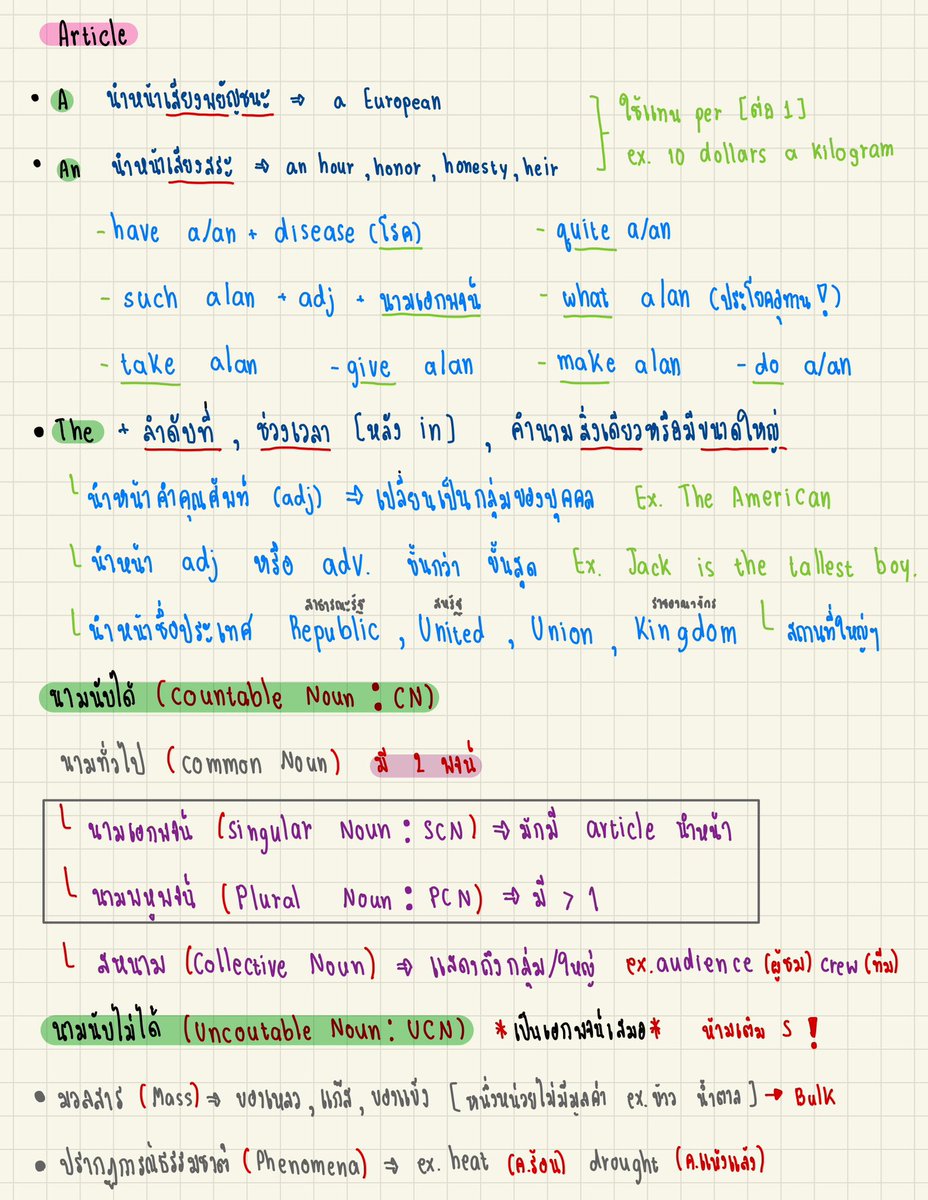 Article
• A นำหน้าเสียงพยัญชนะ ⇒ a European
ใช้แทน per [ต่อ 1]
• An นำหน้าเสียงสระ ⇒ an hour, honor, honesty, heir
ex. 10 dollars a kilogram
- have a/an + disease (โรค) - quite a/an
- such a/an + adj + นามเอกพจน์ - what a/an (ประโยคอุทาน!)
- take a/an - give a/an - make a/an - do a/an
• The + ลำดับที่, ช่วงเวลา [หลัง in], คำนามสิ่งเดียวหรือมีขนาดใหญ่
นำหน้าคำคุณศัพท์ (adj) ⇒ เปลี่ยนเป็นกลุ่มของบุคคล Ex. The American
นำหน้า adj หรือ adv. ขั้นกว่า ขั้นสุด Ex. Jack is the tallest boy.
สาธารณะรัฐ สหรัฐ ราชอาณาจักร
นำหน้าชื่อประเทศ Republic, United, Union, Kingdom สถานที่ใหญ่ๆ
นามนับได้ (Countable Noun : CN)
นามทั่วไป (Common Noun) มี 2 พจน์
นามเอกพจน์ (Singular Noun : SCN) ⇒ มักมี article นำหน้า
นามพหูพจน์ (Plural Noun : PCN) ⇒ มี > 1
สหนาม (Collective Noun) ⇒ แสดงถึงกลุ่ม/ใหญ่ ex. audience (ผู้ชม) crew (ทีม)
นามนับไม่ได้ (Uncoutable Noun : UCN) *เป็นเอกพจน์เสมอ* ห้ามเติม S !
• มวลสาร (Mass) ⇒ ของเหลว, แก๊ส, ของแข็ง [หนึ่งหน่วยไม่มีมูลค่า ex. ข้าว น้ำตาล] → Bulk
• ปรากฏการณ์ธรรมชาติ (Phenomena) ⇒ ex. heat (ค.ร้อน) drought (ค.แห้งแล้ง)